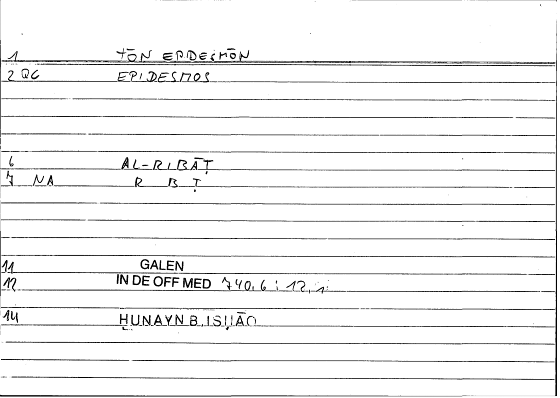 1 TŌN EPIDESMŌN
2 QG EPIDESMOS
6 AL-RIBĀṬ
7 NA R B Ṭ
11 GALEN
12 IN DE OFF MED 740,6 : 12,1
14 ḤUNAYN B. ISḤĀQ